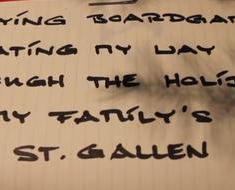 YING BOARDGA
ATING MY WAY
UGH THE HOLI
MY FAMILY'S
ST. GALLEN